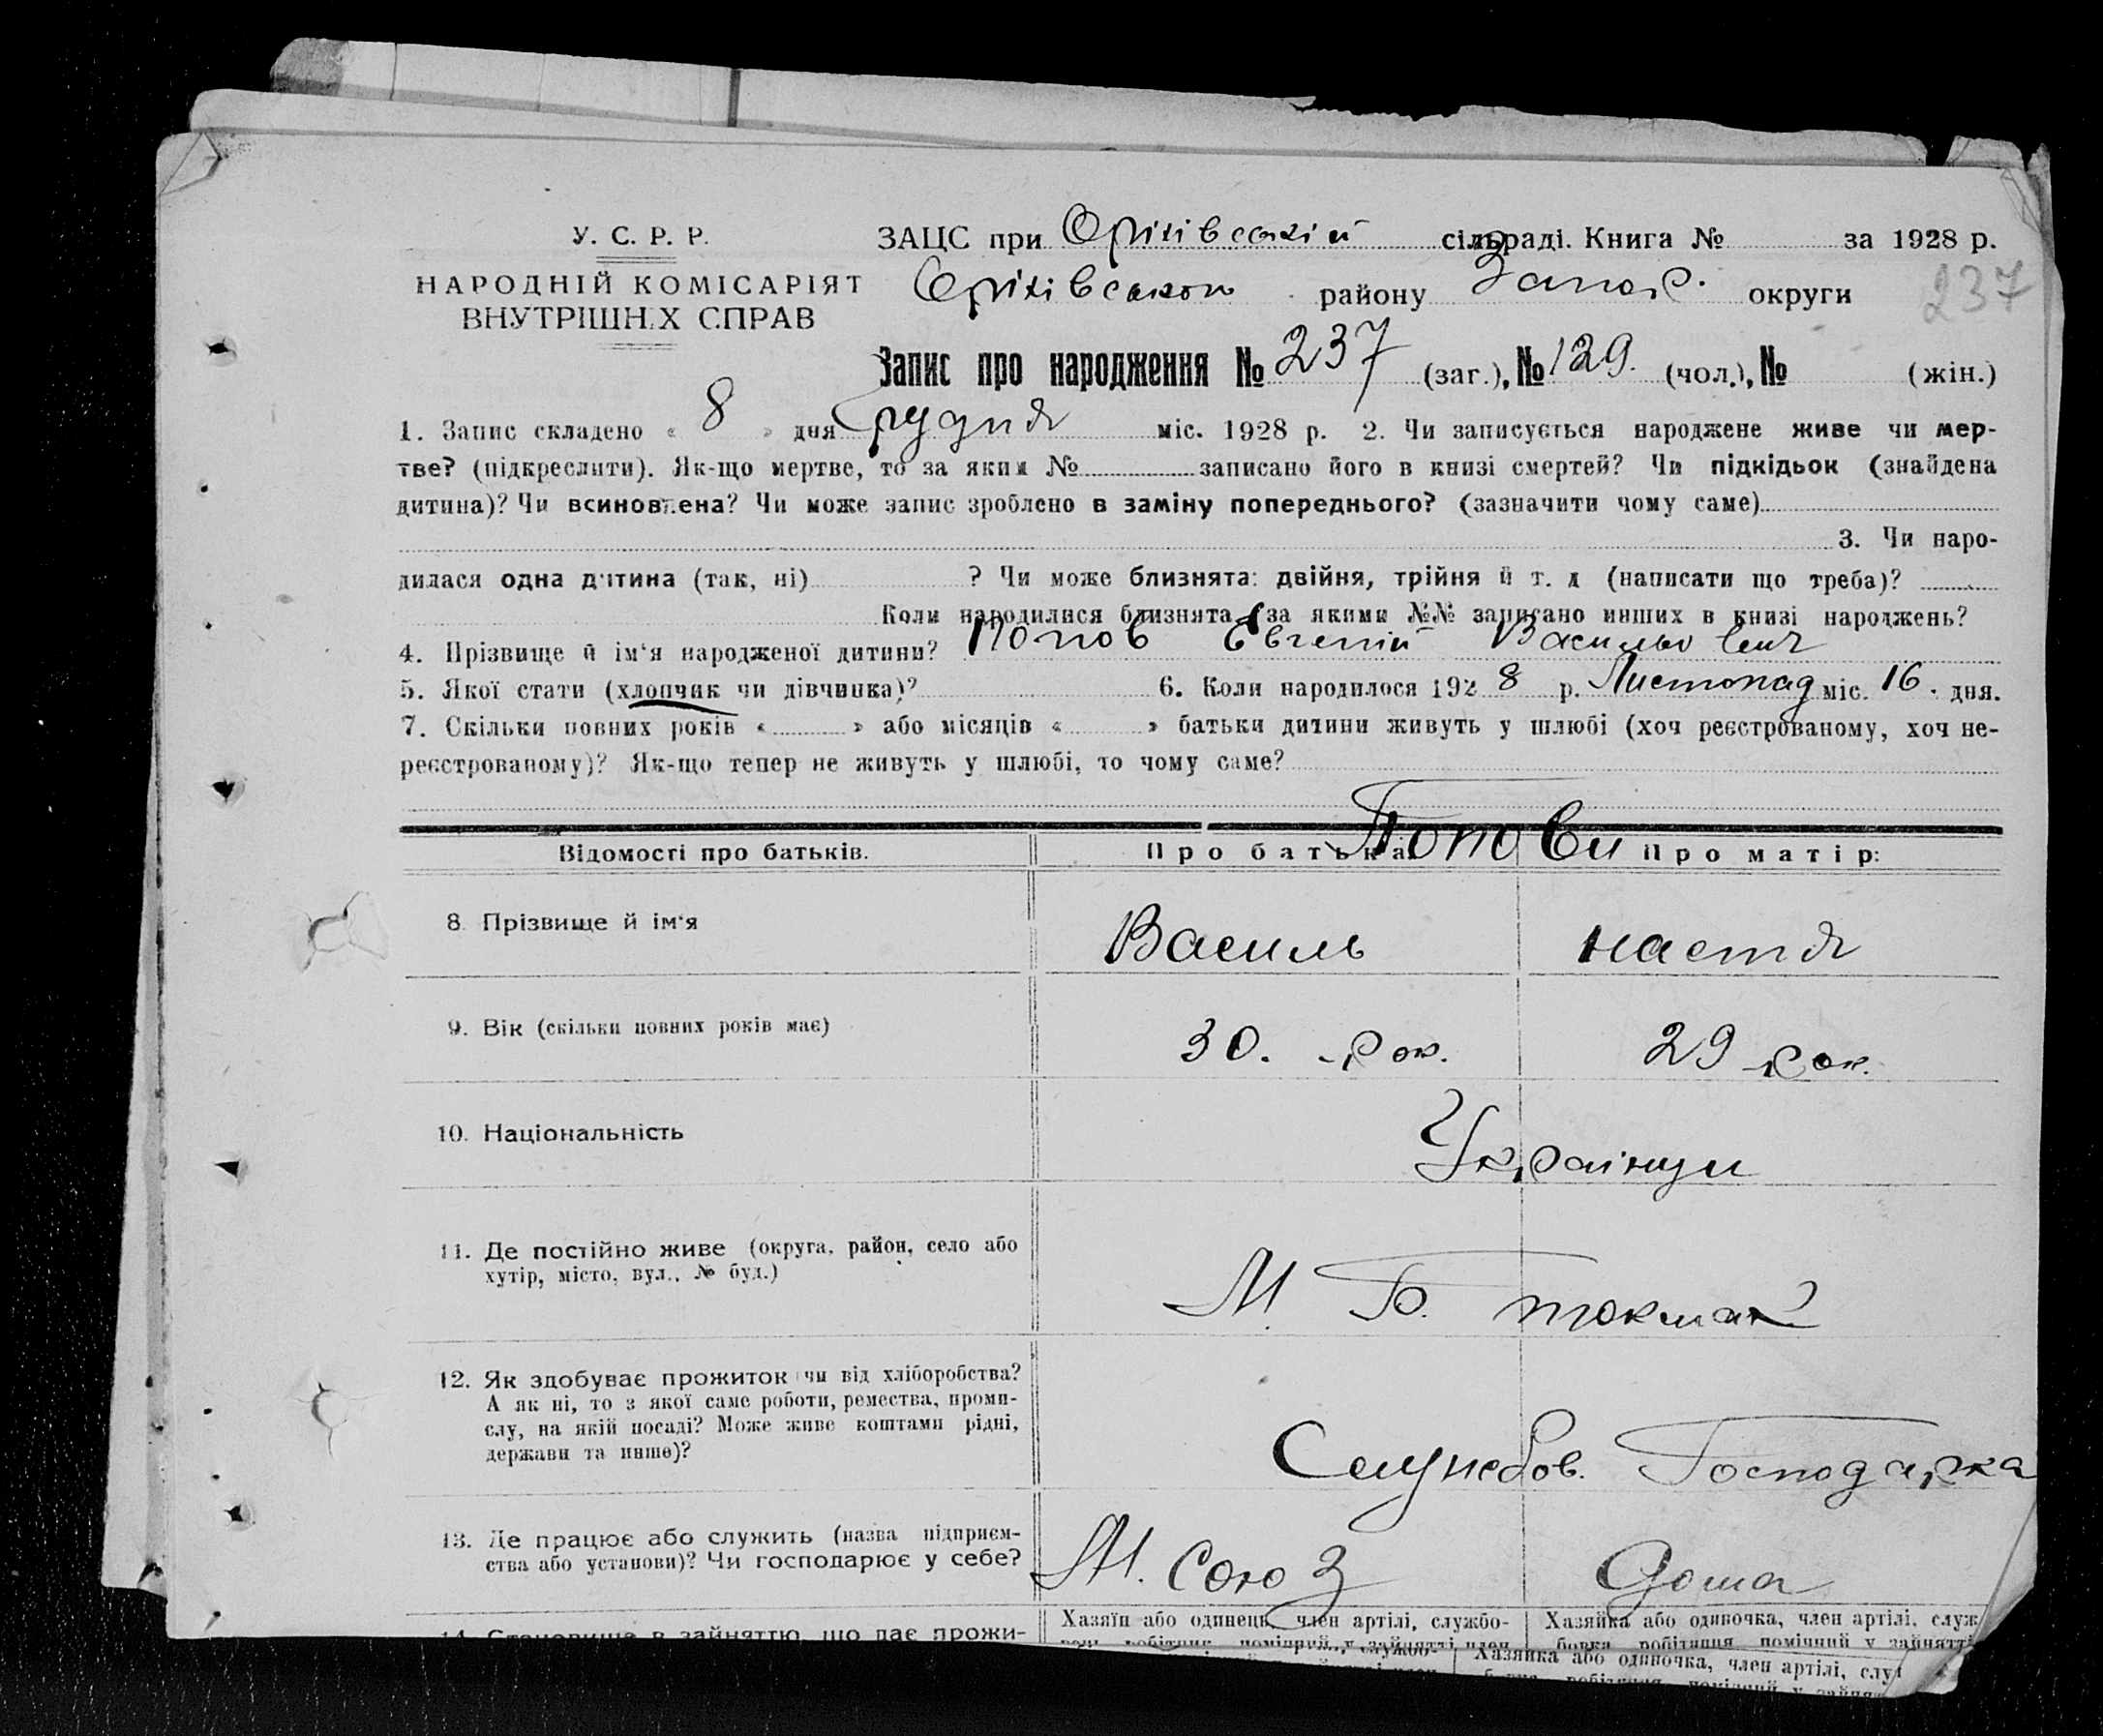 У. С. Р. Р.
НАРОДНІЙ КОМІСАРІЯТ
ВНУТРІШНІХ СПРАВ
ЗАЦС при Оріхівській сільраді. Книга № за 1928 р.
Оріхівського району Запор. округи
237
Запис про народження № 237 (заг.), № 129. (чол.), № (жін.)
1. Запис складено « 8 » дня Грудня міс. 1928 р. 2. Чи записується народжене живе чи мер-
тве? (підкреслити). Як-що мертве, то за яким № записано його в книзі смертей? Чи підкідьок (знайдена
дитина)? Чи всиновлена? Чи може запис зроблено в заміну попереднього? (зазначити чому саме)
3. Чи наро-
дилася одна дитина (так, ні) ? Чи може близнята: двійня, трійня й т. д (написати що треба)?
Коли народилися близнята, за якими №№ записано инших в книзі народжень?
4. Прізвище й ім'я народженої дитини? Попов Евгеній Васильович
5. Якої стати (хлопчик чи дівчинка)? 6. Коли народилося 1928 р. Листопад міс. 16. дня.
7. Скільки повних років « » або місяців « » батьки дитини живуть у шлюбі (хоч реєстрованому, хоч не-
реєстрованому)? Як-що тепер не живуть у шлюбі, то чому саме?
Попови
Відомості про батьків. Про батька: Про матір:
8. Прізвище й ім'я Василь настя
9. Вік (скільки повних років має) 30. рок. 29 рок.
10. Національність Українци
11. Де постійно живе (округа, район, село або
хутір, місто, вул., № буд.)
М. Б. токмак
12. Як здобуває прожиток чи від хліборобства?
А як ні, то з якої саме роботи, ремества, проми-
слу, на якій посаді? Може живе коштами рідні,
держави та инше)?
Служебов. Господарка
13. Де працює або служить (назва підприєм-
ства або установи)? Чи господарює у себе?
М. Союз дома
14. Становище в зайняттю, що дає прожи-
Хазяїн або одинець, член артілі, службо- Хазяйка або одиночка, член артілі, служ
вець, робітник, помічний у зайнятті член бовка, робітниця, помічний у зайнятті
службо- Хазяйка або одиночка, член артілі, слу